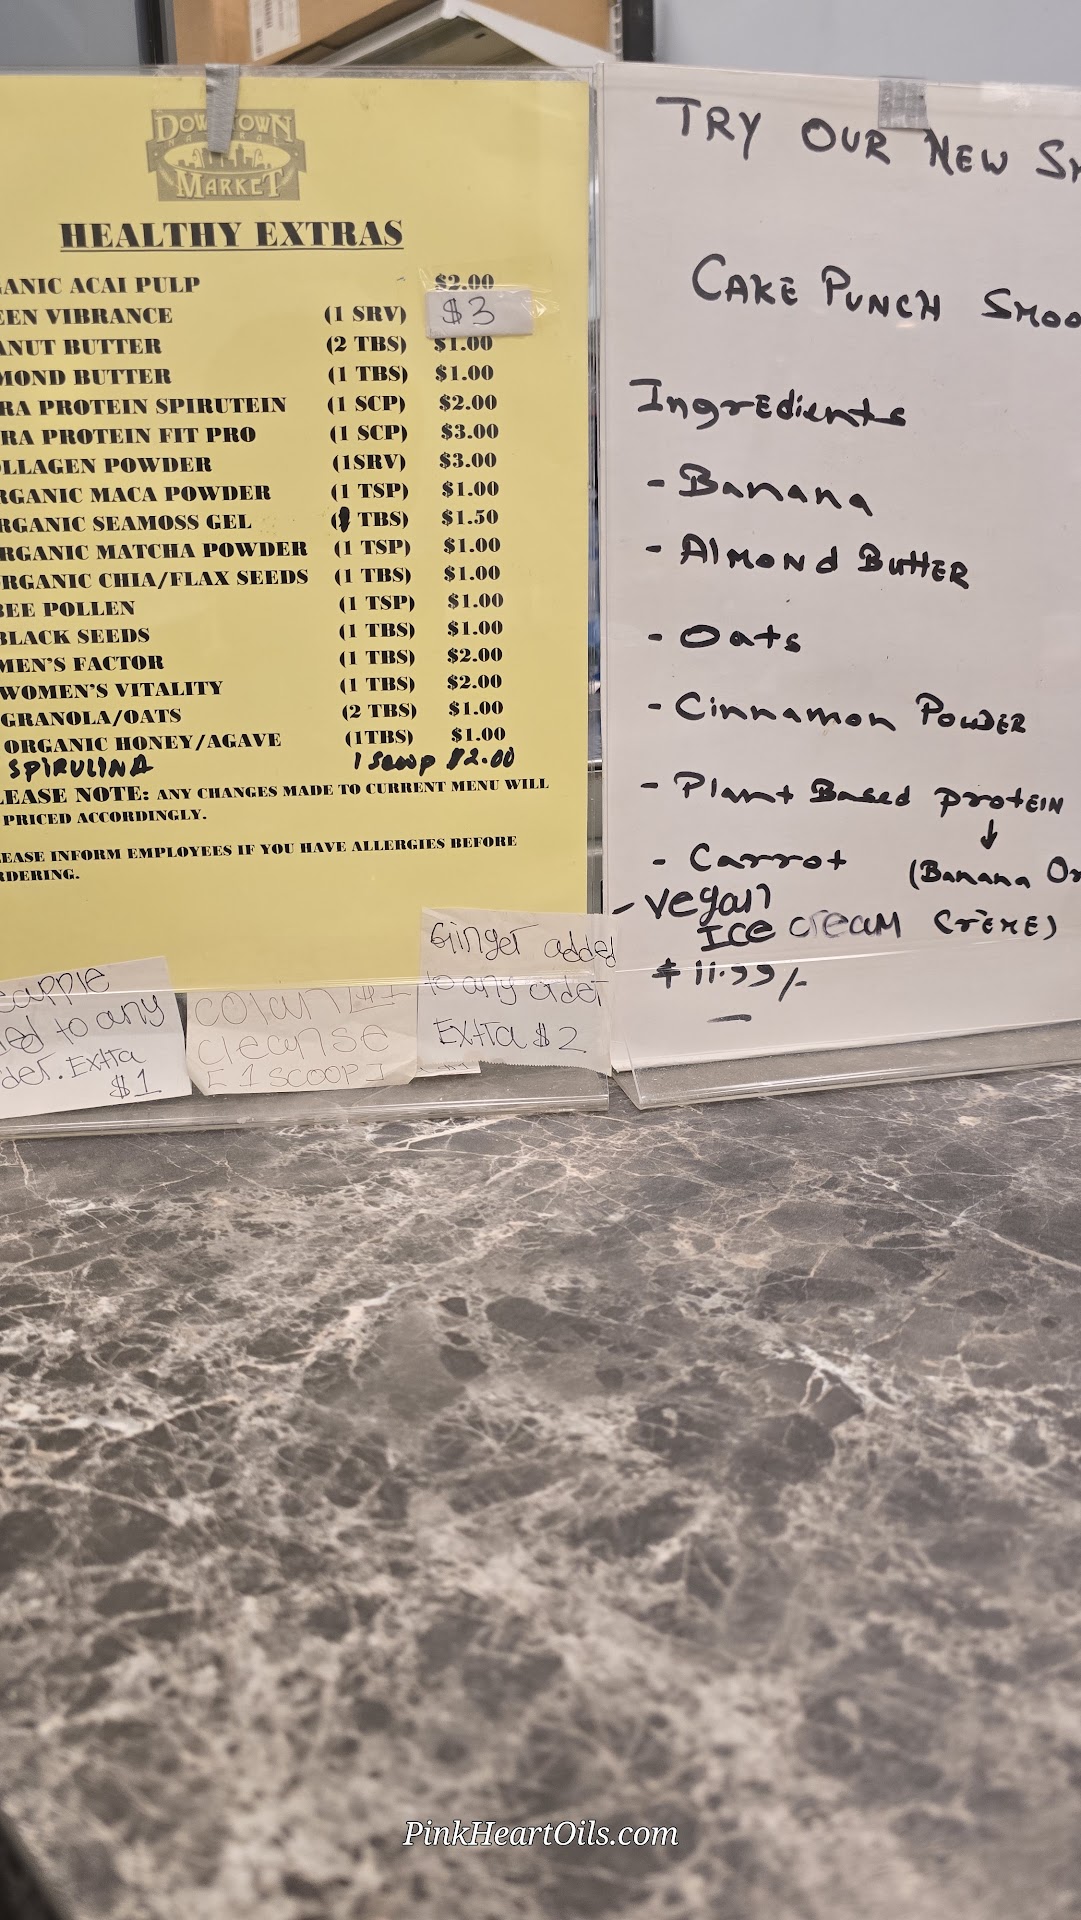 DOWNTOWN
NATURAL
MARKET
HEALTHY EXTRAS
GANIC ACAI PULP $2.00
EEN VIBRANCE (1 SRV) $3
ANUT BUTTER (2 TBS) $1.00
MOND BUTTER (1 TBS) $1.00
RA PROTEIN SPIRUTEIN (1 SCP) $2.00
RA PROTEIN FIT PRO (1 SCP) $3.00
OLLAGEN POWDER (1SRV) $3.00
RGANIC MACA POWDER (1 TSP) $1.00
RGANIC SEAMOSS GEL TBS) $1.50
RGANIC MATCHA POWDER (1 TSP) $1.00
ORGANIC CHIA/FLAX SEEDS (1 TBS) $1.00
BEE POLLEN (1 TSP) $1.00
BLACK SEEDS (1 TBS) $1.00
MEN'S FACTOR (1 TBS) $2.00
WOMEN'S VITALITY (1 TBS) $2.00
GRANOLA/OATS (2 TBS) $1.00
ORGANIC HONEY/AGAVE (1TBS) $1.00
SPIRULINA 1 Scoop $2.00
LEASE NOTE: ANY CHANGES MADE TO CURRENT MENU WILL
PRICED ACCORDINGLY.
EASE INFORM EMPLOYEES IF YOU HAVE ALLERGIES BEFORE
RDERING.
eapple
ded to any
der. Extra
$1
colan $1
cleanse
[1 SCOOP]
Ginger added
to any order
Extra $2
TRY OUR NEW SM
CAKE PUNCH SMOO
IngrEdients
- Banana
- Almond ButtER
- Oats
- Cinnamon PowdER
- Plant Based protEIN
↓
- Carrot (Banana Or
- vegan
Ice cream CrÈME)
$11.99/-
PinkHeartOils.com